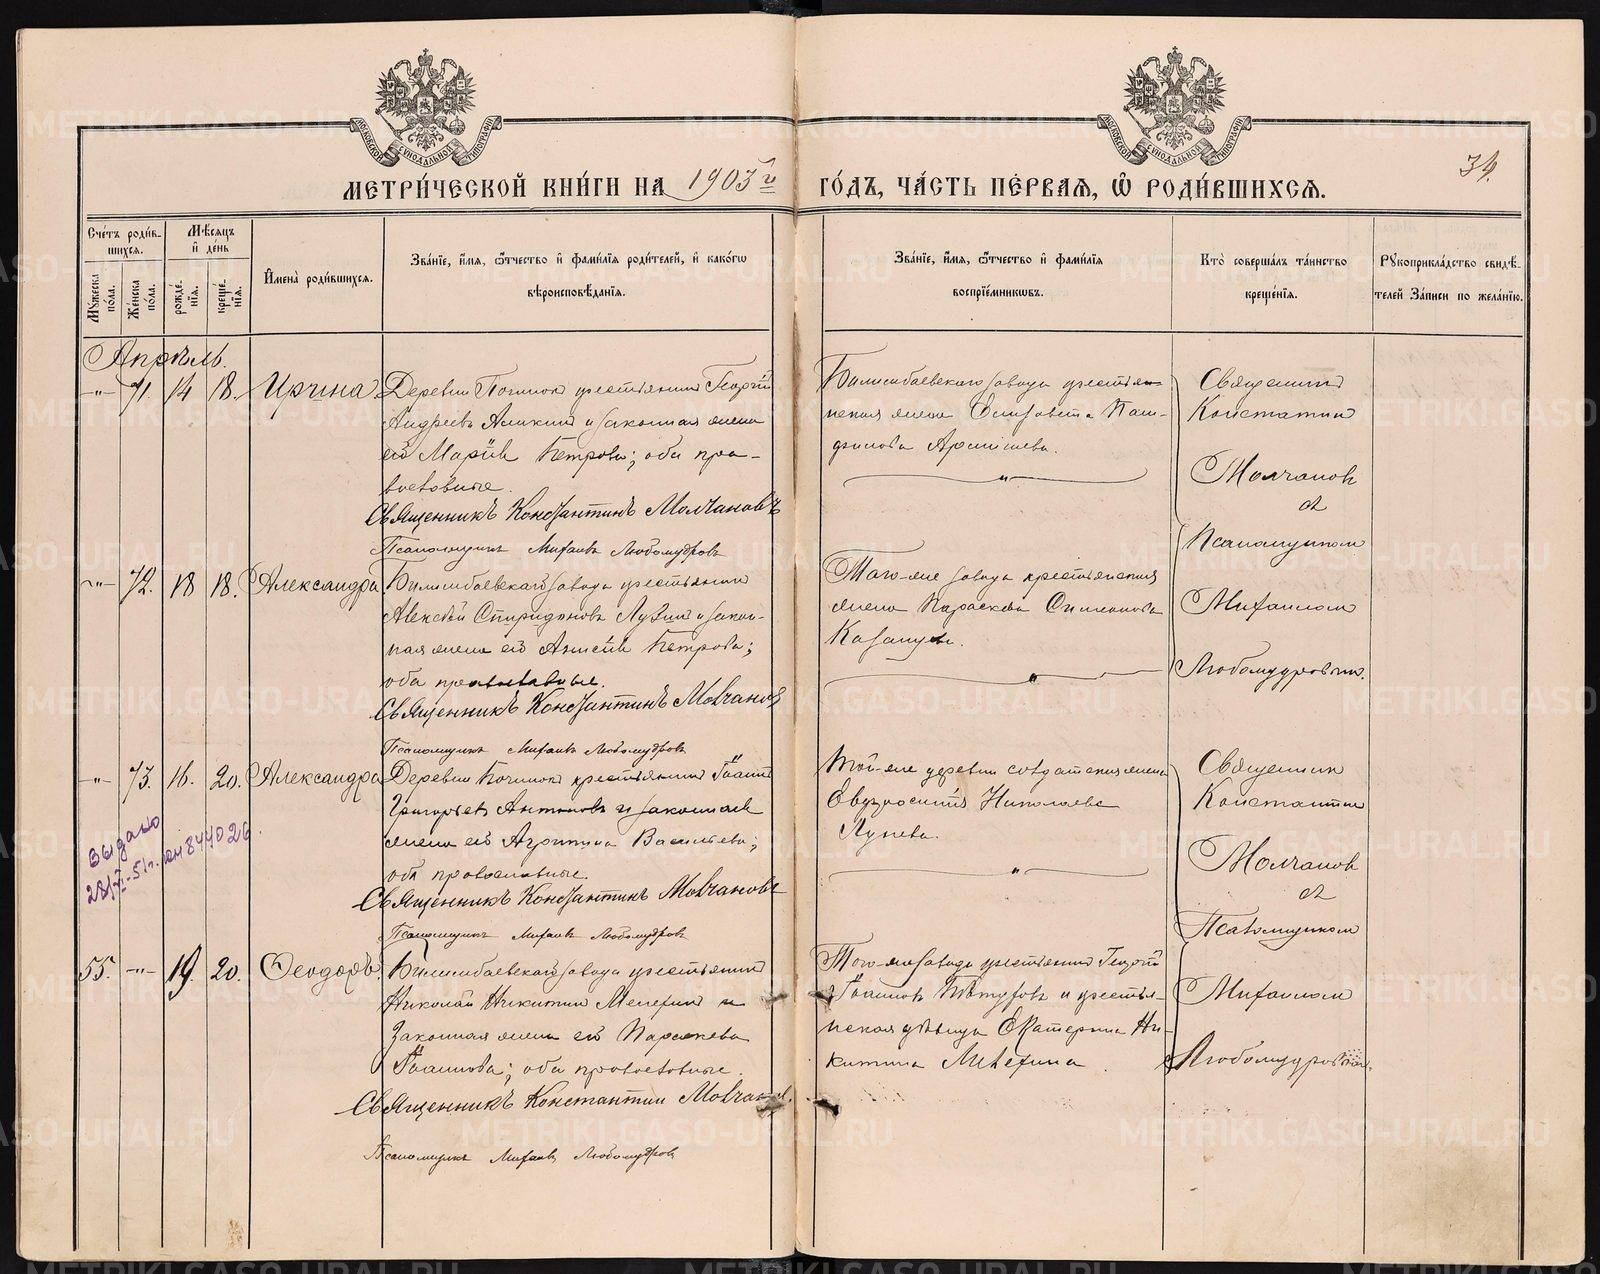 МЕТРИ́ЧЕСКОЙ КНИ́ГИ НА 1903 г. ГО́ДЪ, ЧА́СТЬ ПЕ́РВАЯ, Ѽ РОДИ́ВШИХСЯ.
34.
МОСКОВСКОЙ СѴНОДАЛЬНОЙ ТИПОГРАФІИ
МОСКОВСКОЙ СѴНОДАЛЬНОЙ ТИПОГРАФІИ
Сче́тъ роди́в-
шихся.
Мѣ́сяцъ
и҆ де́нь
Мꙋ́жеска
по́ла.
Же́нска
по́ла.
рожде́-
нїя.
креще́-
нїя.
И҆мена̀ роди́вшихся.
Зва́нїе, и҆́мя, ѻ҆́тчество и҆ фами́лїя роди́телей, и҆ како́гѡ
вѣроисповѣ́данїя.
Зва́нїе, и҆́мя, ѻ҆́тчество и҆ фами́лїя
воспрїе́мникѡвъ.
Кто̀ соверша́лъ та́инство
креще́нїя.
Рꙋкоприкла́дство свидѣ́-
телей За́писи по жела́нїю.
Апрѣль.
-"- 71. 14 18. Ирина
Деревни Починок крестьянинъ Георгій
Андреевъ Аликинъ и законная жена
его Марія Петрова; оба пра-
вославные.
Священникъ Константинъ Молчановъ
Псаломщикъ Михаилъ Любомудровъ
Билимбаевскаго завода крестьян-
ская жена Елизавета Пам-
филова
Священник
Константин
Молчанов
съ
Псаломщиком
Михаилом
Любомудровым.
-"- 72. 18 18. Александра
Билимбаевскаго завода крестьянин
Алексѣй Спиридонов Лузин и закон-
ная жена его Анисія Петрова;
оба православные.
Священникъ Константинъ Молчановъ
Псаломщикъ Михаилъ Любомудровъ
Того-же завода крестьянская
жена Параскева Симеонова
-"- 73. 16. 20. Александра
Деревни Починок крестьянин Іоаннъ
Григорьев Антонов и законная
жена его Агрипина Васильева;
оба православные.
Священникъ Константинъ Молчановъ
Псаломщикъ Михаилъ Любомудровъ
Той-же деревни солдатская жена
Евфросинія Николаева
Лузева.
Священник
Константин
Молчанов
съ
Псаломщиком
Михаилом
Любомудровым.
выдано
28/XI-51г. 844026.
55. -"- 19. 20. Ѳеодоръ
Билимбаевскаго завода крестьянин
Николай Никитин Мелехин и
законная жена его Параскева
Іоаннова; оба православные.
Священникъ Константин Молчановъ.
Псаломщикъ Михаилъ Любомудров
Того-же завода крестьянин Георгій
Іоаннов и крестьян-
ская дѣвица Екатерина Ни-
китина Мелехина.
METRIKI.GASO-URAL.RU